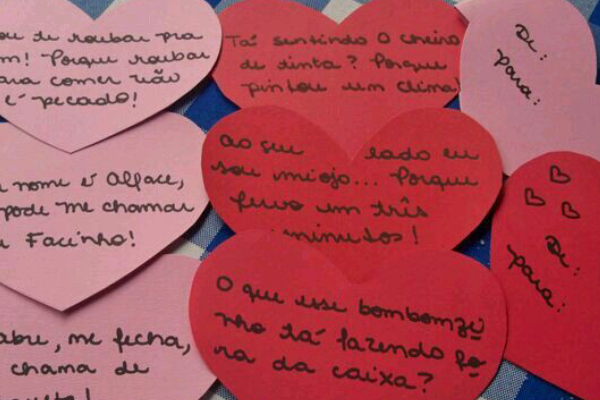 ou de roubar pra
m! Porque roubar
ara comer não
é pecado!
Tá sentindo o cheiro
de tinta? Porque
pintou um clima!
De:
para:
nome é Alface,
pode me chamar
Facinho!
ao seu lado eu
sou miojo... Porque
fervo em três
minutos!
De:
para:
abre, me fecha,
chama de
O que esse bombomzi
nho tá fazendo fo
ra da caixa?